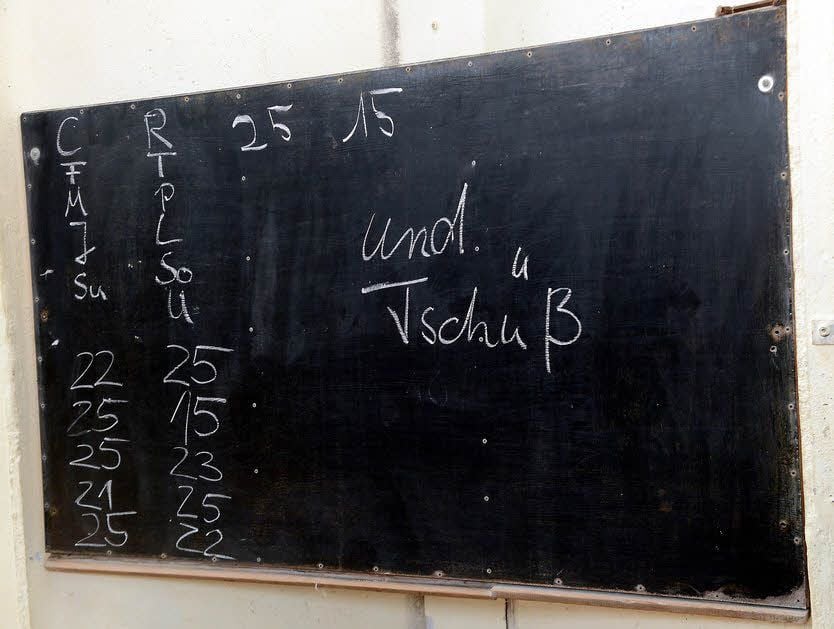 C R 25 15
F T
M P
J L
Su So
U
und
Tschüß
22 25
25 15
25 23
21 25
25 22